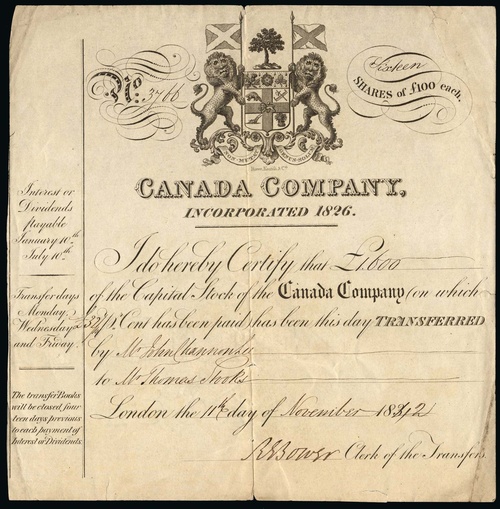 No. 3766
Sixteen
SHARES of £100 each.
CANADA COMPANY,
INCORPORATED 1826.
Interest or
Dividends
payable
January 10th
July 10th
Transfer days
Monday,
Wednesday,
and Friday.
The transfer Books
will be closed four
teen days previous
to each payment of
Interest or Dividends.
I do hereby Certify that £1,600
of the Capital Stock of the Canada Company (on which
Cent has been paid) has been this day TRANSFERRED
by Mr. John
to Mr. Thomas
London the 11th day of November 1842
Bower Clerk of the Transfers.